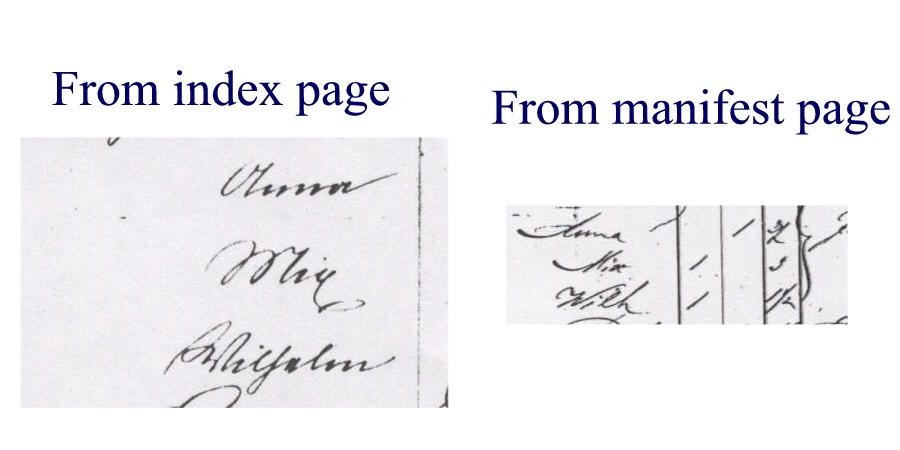 From index page
Anna
Mix
Wilhelm
From manifest page
Anna / 2
Mix / 3
Wilh / 1/2